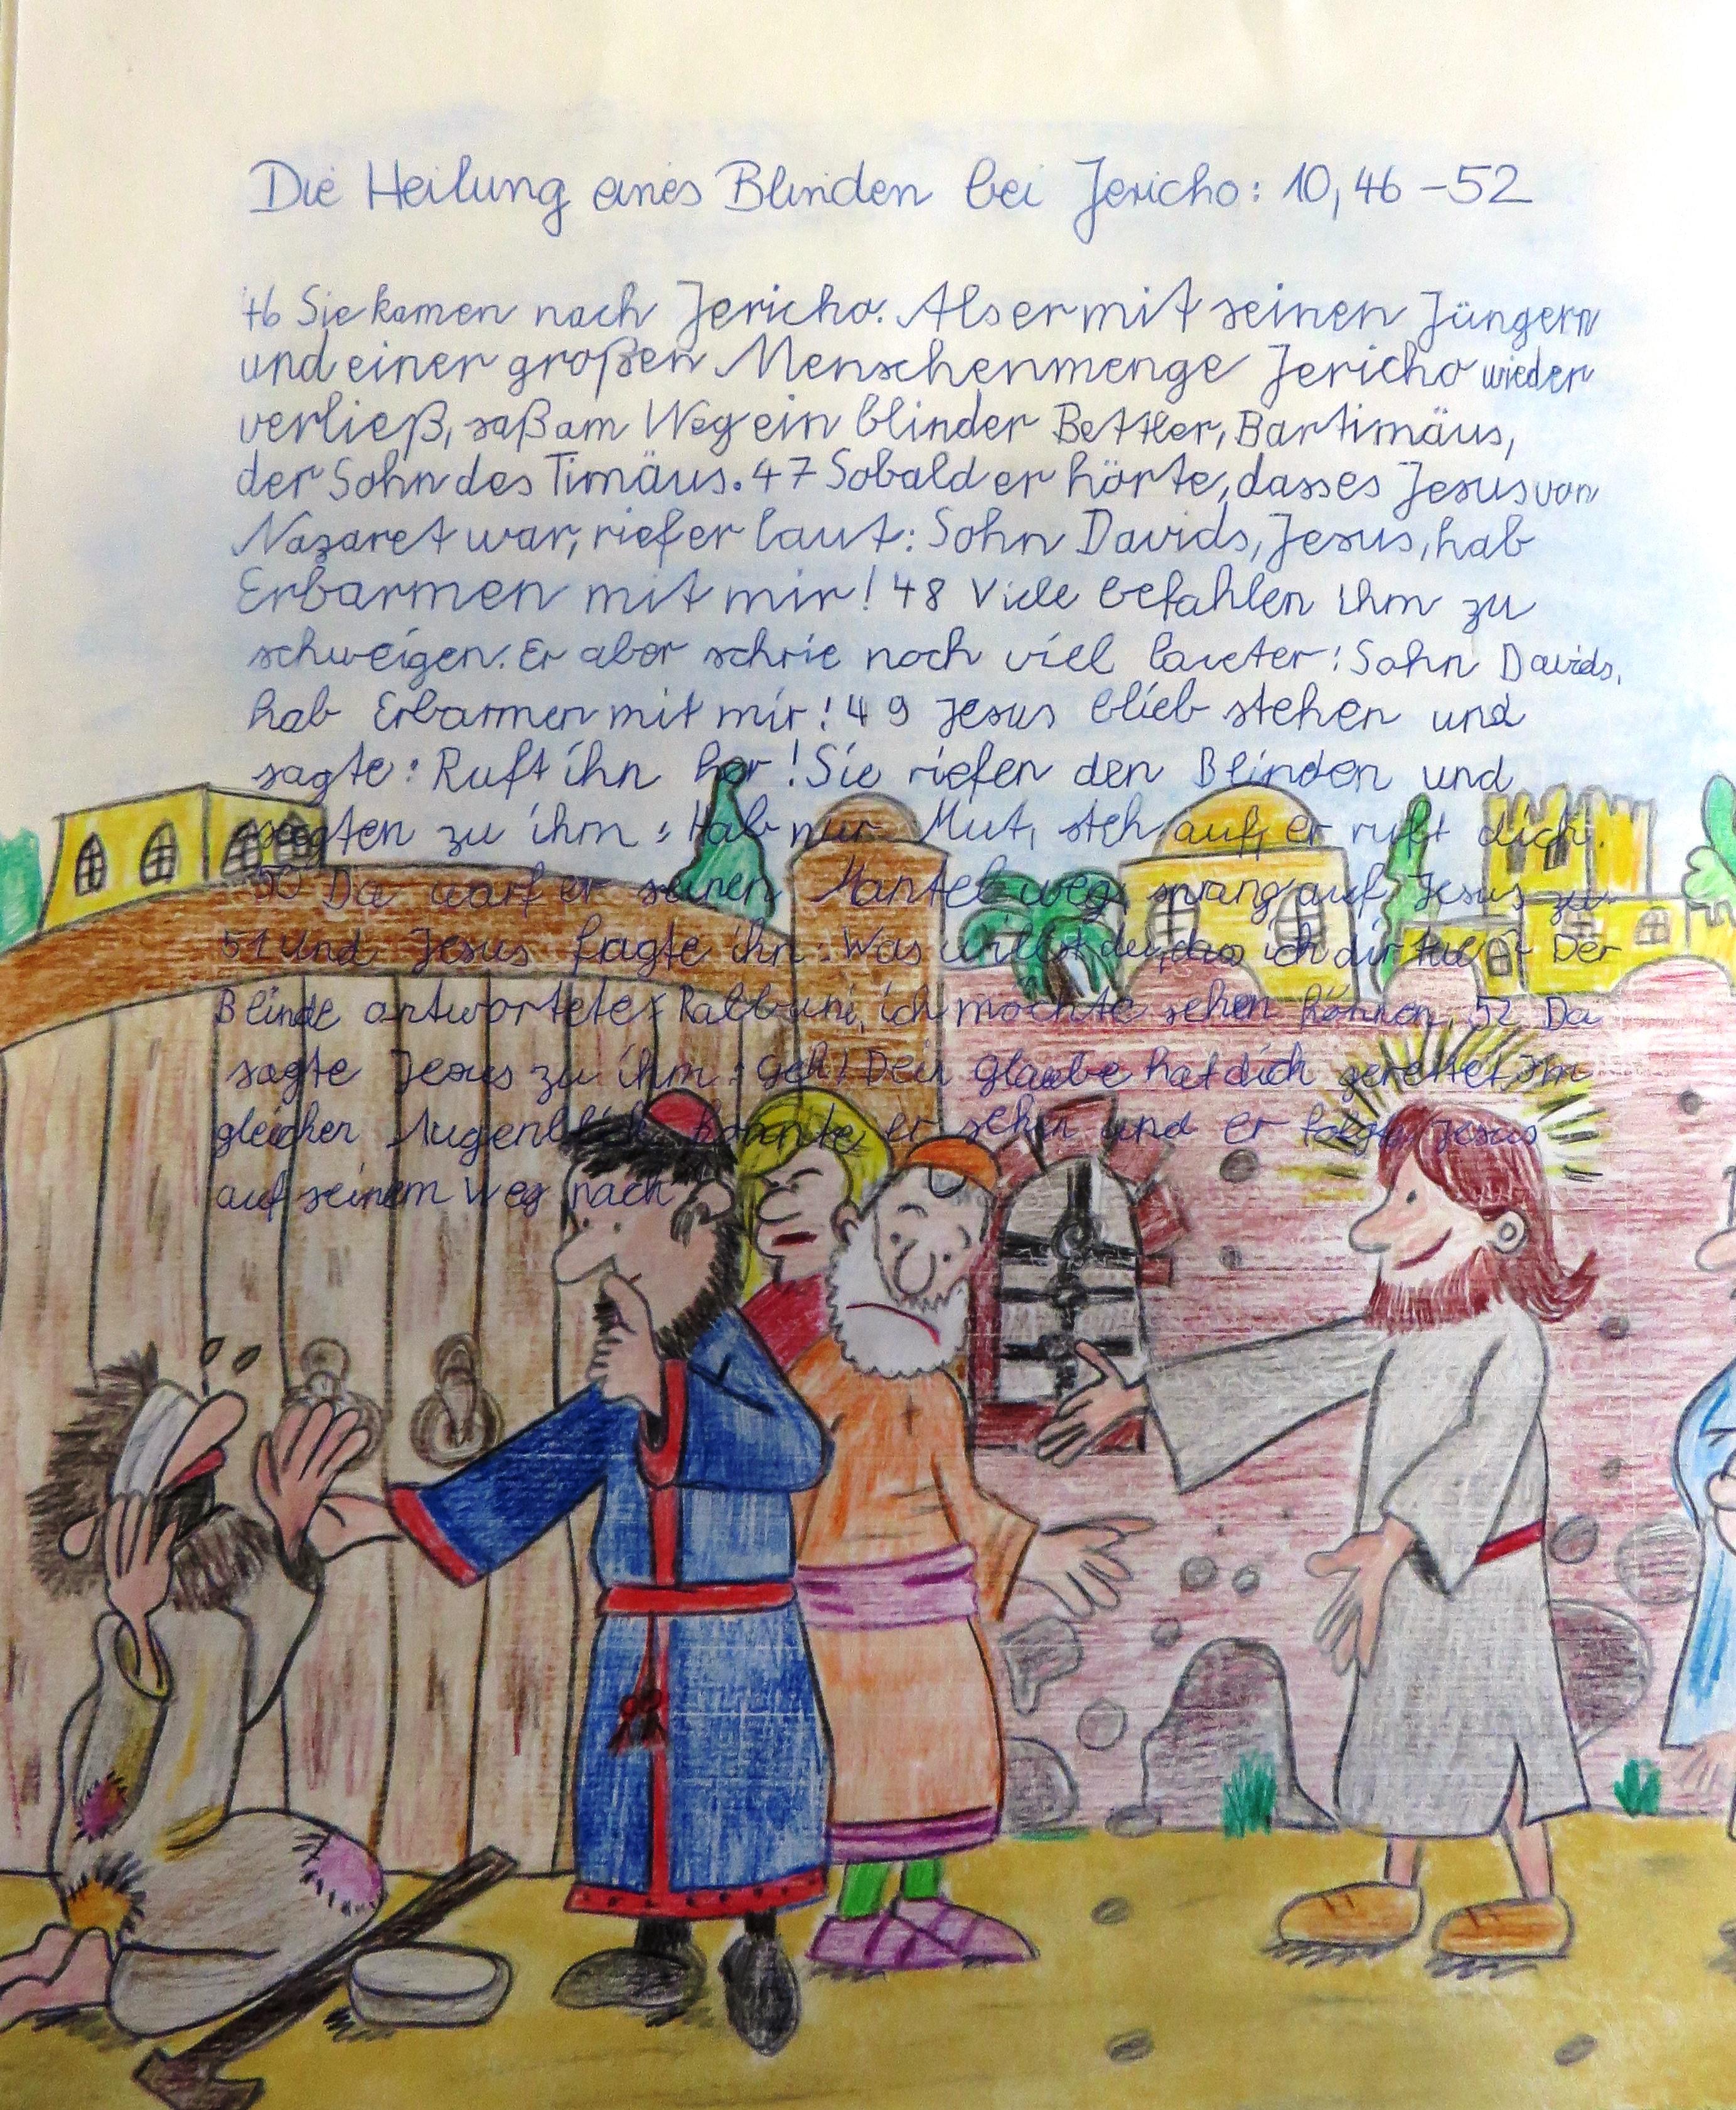 Die Heilung eines Blinden bei Jericho: 10,46-52
46 Sie kamen nach Jericho. Als er mit seinen Jüngern
und einer großen Menschenmenge Jericho wieder
verließ, saß am Weg ein blinder Bettler, Bartimäus,
der Sohn des Timäus. 47 Sobald er hörte, dass es Jesus von
Nazaret war, rief er laut: Sohn Davids, Jesus, hab
Erbarmen mit mir! 48 Viele befahlen ihm zu
schweigen. Er aber schrie noch viel lauter: Sohn Davids,
hab Erbarmen mit mir! 49 Jesus blieb stehen und
sagte: Ruft ihn her! Sie riefen den Blinden und
sagten zu ihm: Hab nur Mut, steh auf, er ruft dich.
50 Da warf er seinen Mantel weg, sprang auf Jesus zu.
51 Und Jesus fragte ihn: Was willst du, das ich dir tue? Der
Blinde antwortete: Rabbuni, ich möchte sehen können. 52 Da
sagte Jesus zu ihm: Geh! Dein Glaube hat dich gerettet, Im
gleichen Augenblick konnte er sehen und er folgte Jesus
auf seinem Weg nach